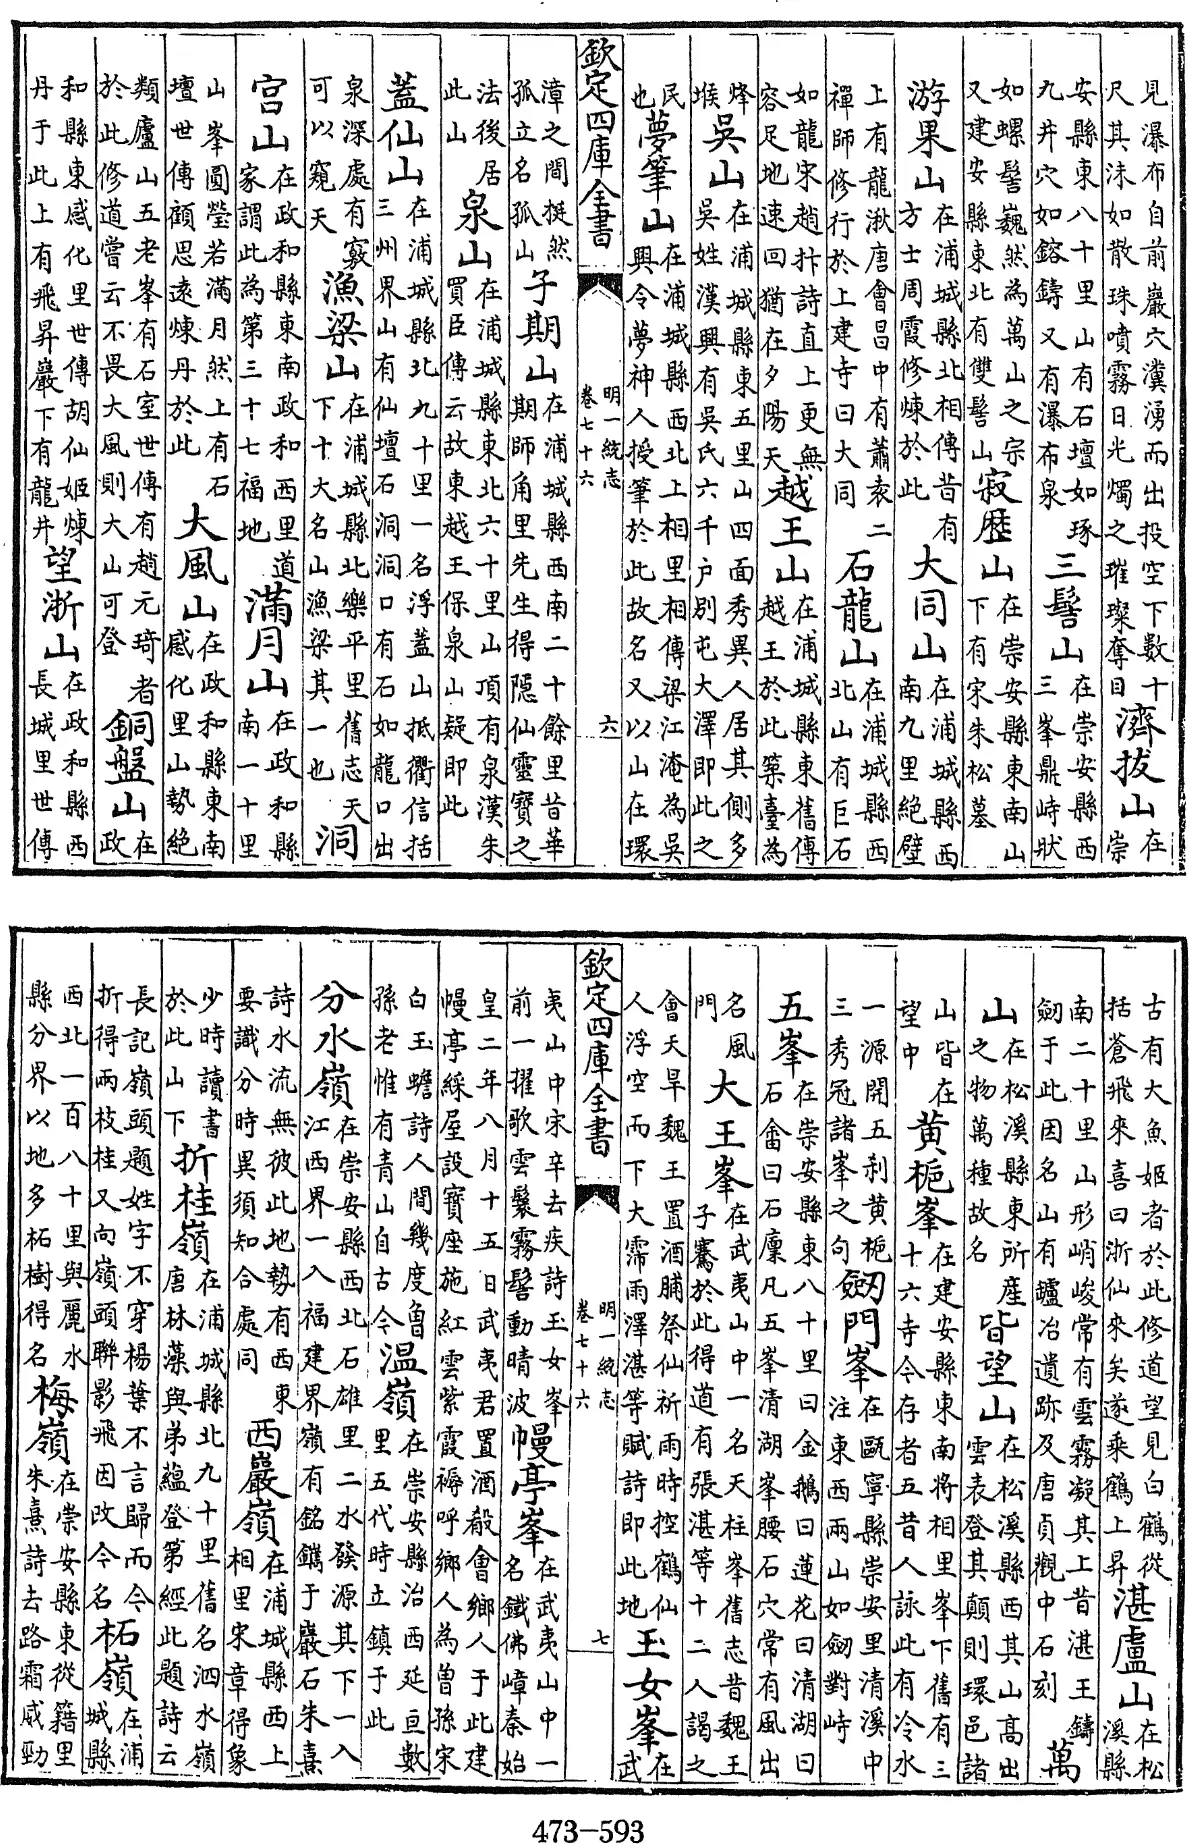 見瀑布自前巖穴瀵湧而出投空下數十尺其沫如散珠噴霧日光燭之璀璨奪目濟拔山在崇
安縣東八十里山有石壇如琢九井穴如鎔鑄又有瀑布泉三髻山在崇安縣西三峯鼎峙狀
如螺髻巍然為萬山之宗又建安縣東北有雙髻山寂歴山在崇安縣東南山下有宋朱松墓
游果山在浦城縣北相傳昔有方士周霞修煉於此大同山在浦城縣西南九里絕壁
上有龍湫唐會昌中有蕭袁二禪師修行於上建寺曰大同石龍山在浦城縣西北山有巨石
如龍宋趙抃詩直上更無容足地速回猶在夕陽天越王山在浦城縣東舊傳越王於此築臺為
烽堠吳山在浦城縣東五里山四面秀異人居其側多吳姓漢興有吳氏六千戶別屯大澤即此之
民也夢筆山在浦城縣西北上相里相傳梁江淹為吳興令夢神人授筆於此故名又以山在環
欽定四庫全書 明一統志 卷七十六 六
漳之間挺然孤立名孤山子期山在浦城縣西南二十餘里昔華期師角里先生得隱仙靈寶之
法後居此山泉山在浦城縣東北六十里山頂有泉漢朱買臣傳云故東越王保泉山疑即此
蓋仙山在浦城縣北九十里一名浮蓋山抵衢信括三州界山有仙壇石洞洞口有石如龍口出
泉深處有竅可以窺天漁梁山在浦城縣北樂平里舊志天下十大名山漁梁其一也洞
宮山在政和縣東南政和西里道家謂此為第三十七福地滿月山在政和縣南一十里
山峯圓瑩若滿月然上有石壇世傳顧思遠煉丹於此大風山在政和縣東南感化里山勢絶
類廬山五老峯有石室世傳有趙元琦者於此修道嘗云不畏大風則大山可登銅盤山在政
和縣東感化里世傳胡仙姬煉丹于此上有飛昇巖下有龍井望浙山在政和縣西長城里世傳
古有大魚姬者於此修道望見白鶴從括蒼飛來喜曰浙仙來矣遂乘鶴上昇湛盧山在松溪縣
南二十里山形峭峻常有雲霧凝其上昔湛王鑄劒于此因名山有鑪冶遺跡及唐貞觀中石刻萬
山在松溪縣東所產之物萬種故名皆望山在松溪縣西其山高出雲表登其顛則環邑諸
山皆在望中黃梔峯在建安縣東南將相里峯下舊有三十六寺今存者五昔人詠此有冷水
一源開五刹黄梔三秀冠諸峯之句劒門峯在甌寧縣崇安里清溪中注東西兩山如劒對峙
五峯在崇安縣東八十里曰金鵝曰蓮花曰清湖曰石畬曰石廩凡五峯清湖峯腰石穴常有風出
名風門大王峯在武夷山中一名天柱峯舊志昔魏王子騫於此得道有張湛等十二人謁之
會天旱魏王置酒脯祭仙祈雨時控鶴仙人浮空而下大霈雨澤湛等賦詩即此地玉女峯在武
欽定四庫全書 明一統志 卷七十六 七
夷山中宋辛去疾詩玉女峯前一擢歌雲鬟霧髻動晴波幔亭峯在武夷山中一名鐵佛嶂秦始
皇二年八月十五日武夷君置酒殽會鄉人于此建幔亭綵屋設寶座施紅雲紫霞褥呼鄉人為曾孫宋
白玉蟾詩人間幾度曾孫老惟有青山自古今温嶺在崇安縣治西延亘數里五代時立鎮于此
分水嶺在崇安縣西北石雄里二水發源其下一入江西界一入福建界嶺有銘鐫于巖石朱熹
詩水流無彼此地勢有西東要識分時異須知合處同西巖嶺在浦城縣西上相里宋章得象
少時讀書於此山下折桂嶺在浦城縣北九十里舊名泗水嶺唐林藻與弟蘊登第經此題詩云
長記嶺頭題姓字不穿楊葉不言歸而今折得兩枝桂又向嶺頭聯影飛因改今名柘嶺在浦城縣
西北一百八十里與麗水縣分界以地多柘樹得名梅嶺在崇安縣東從籍里朱熹詩去路霜威勁
473-593